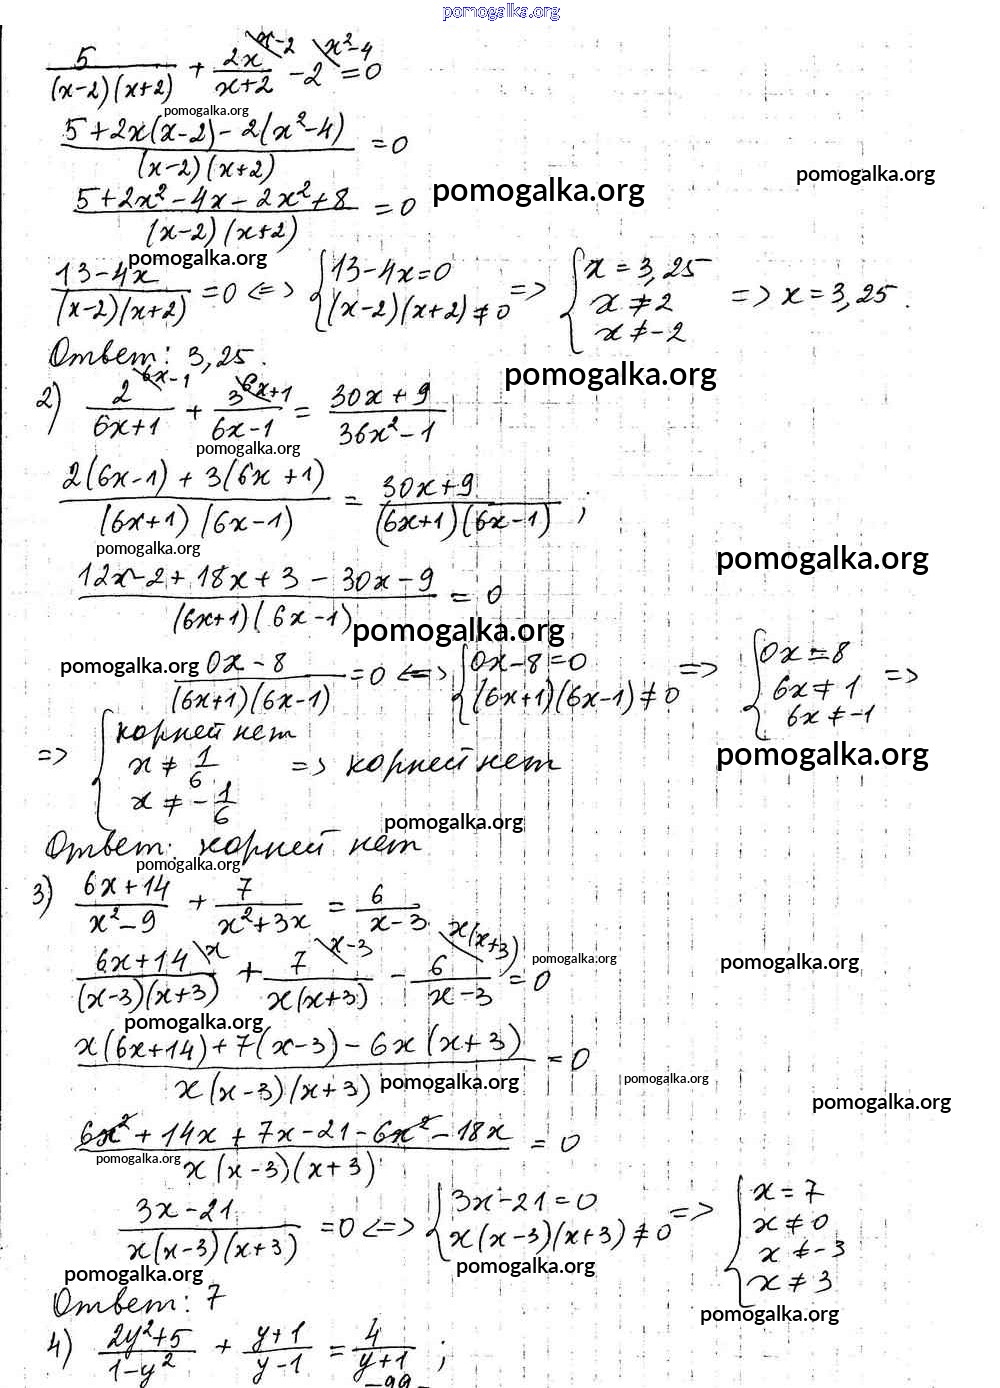 pomogalka.org
5/((x-2)(x+2)) + 2x/(x+2) \x-2 - 2 \x²-4 = 0
pomogalka.org
(5+2x(x-2)-2(x²-4))/((x-2)(x+2)) = 0
pomogalka.org
pomogalka.org
(5+2x²-4x-2x²+8)/((x-2)(x+2)) = 0
pomogalka.org
(13-4x)/((x-2)(x+2)) = 0 <=> { 13-4x=0 (x-2)(x+2)≠0 => { x=3,25 x≠2 x≠-2 => x=3,25.
Ответ: 3,25.
pomogalka.org
2) 2/(6x+1) \6x-1 + 3/(6x-1) \6x+1 = (30x+9)/(36x²-1)
pomogalka.org
(2(6x-1)+3(6x+1))/((6x+1)(6x-1)) = (30x+9)/((6x+1)(6x-1)) ;
pomogalka.org
pomogalka.org
(12x-2+18x+3-30x-9)/((6x+1)(6x-1)) = 0
pomogalka.org
pomogalka.org
(0x-8)/((6x+1)(6x-1)) = 0 <=> { 0x-8=0 (6x+1)(6x-1)≠0 => { 0x=8 6x≠1 6x≠-1 =>
pomogalka.org
=> { корней нет x≠1/6 x≠-1/6 => корней нет
pomogalka.org
Ответ: корней нет
pomogalka.org
3) (6x+14)/(x²-9) + 7/(x²+3x) = 6/(x-3)
(6x+14)/((x-3)(x+3)) \x + 7/(x(x+3)) \x-3 - 6/(x-3) \x(x+3) = 0
pomogalka.org
pomogalka.org
pomogalka.org
(x(6x+14)+7(x-3)-6x(x+3))/(x(x-3)(x+3)) = 0
pomogalka.org
pomogalka.org
pomogalka.org
(6x²+14x+7x-21-6x²-18x)/(x(x-3)(x+3)) = 0
pomogalka.org
(3x-21)/(x(x-3)(x+3)) = 0 <=> { 3x-21=0 x(x-3)(x+3)≠0 => { x=7 x≠0 x≠-3 x≠3
pomogalka.org
pomogalka.org
Ответ: 7
pomogalka.org
4) (2y²+5)/(1-y²) + (y+1)/(y-1) = 4/(y+1) ;